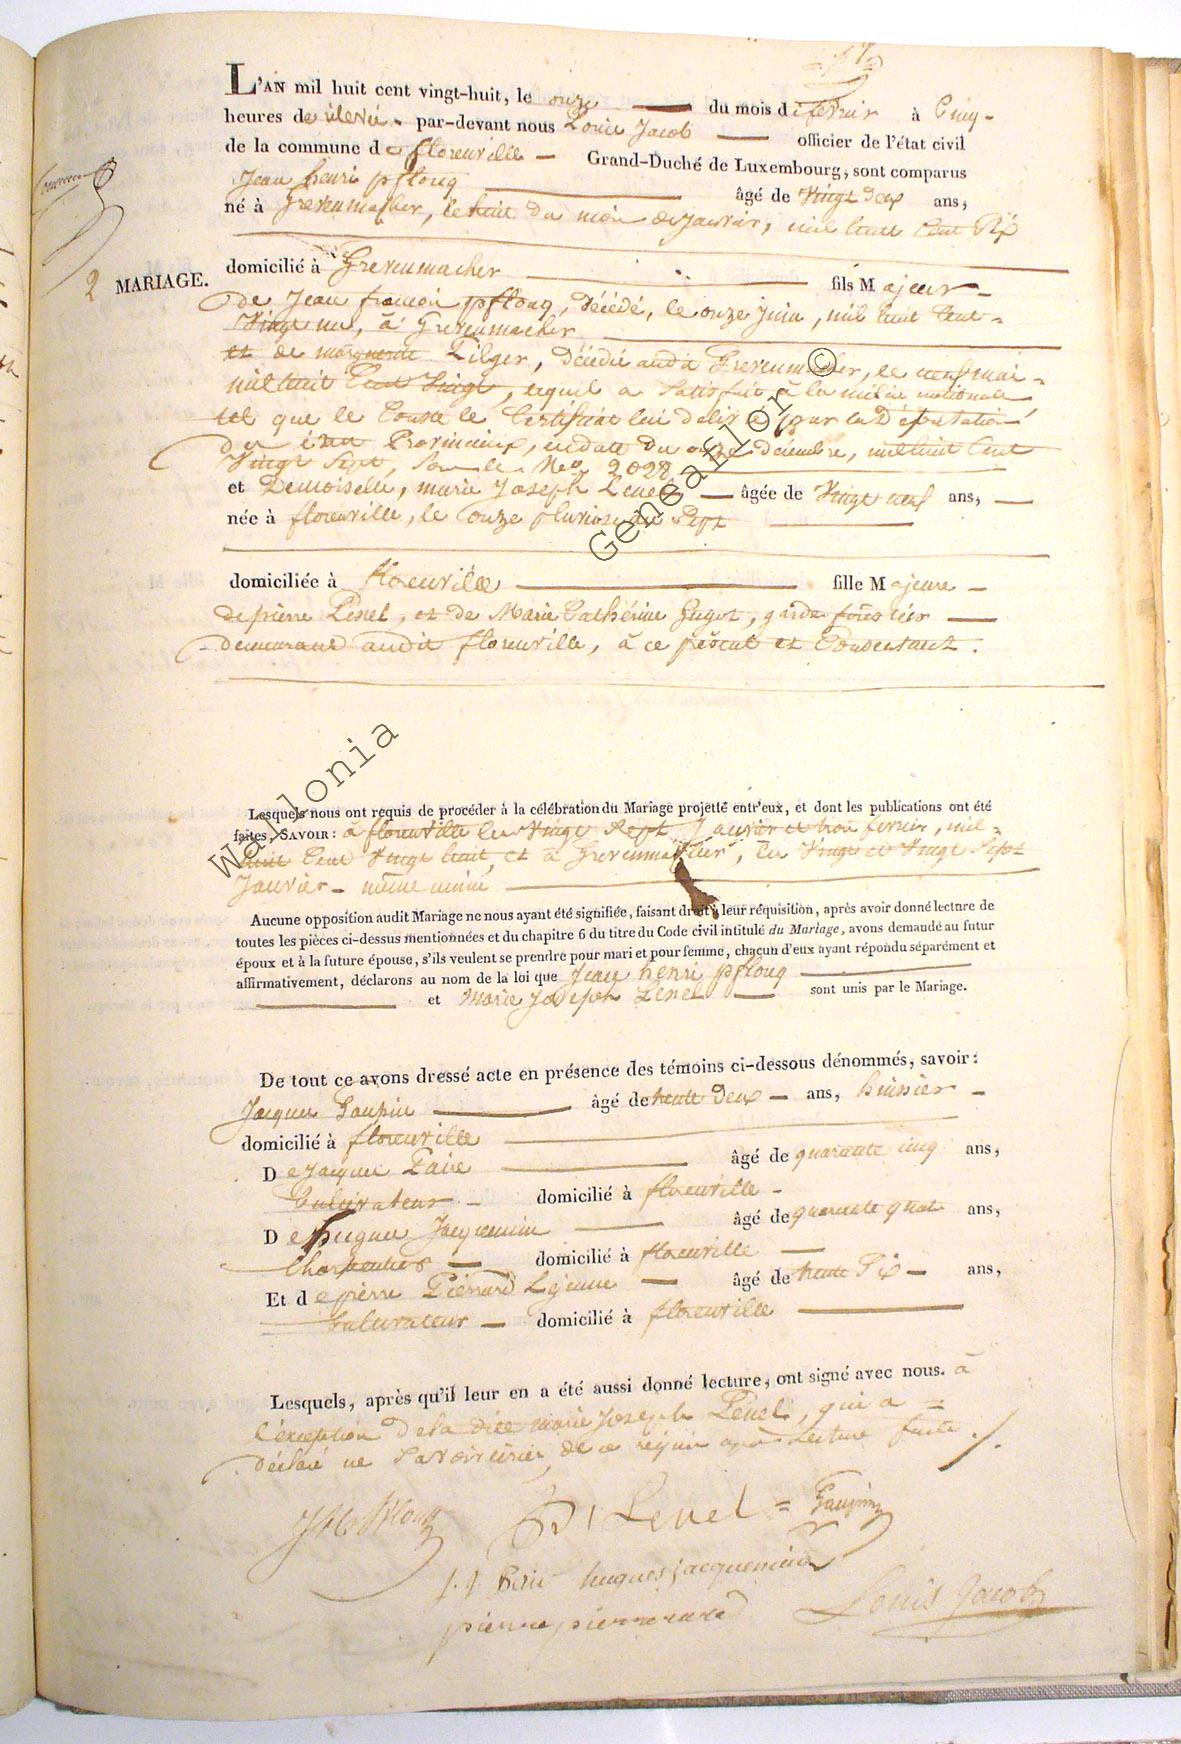 L'AN mil huit cent vingt-huit, le onze du mois de fevrier à Cinq
heures de relevée par-devant nous Louis Jacob officier de l'état civil
de la commune de florenville Grand-Duché de Luxembourg, sont comparus
Jean henri pflouq âgé de Vingt deux ans,
né à Grevenmacher, le huit du mois de janvier, mil huit Cent Six
2 MARIAGE.
domicilié à Grevenmacher fils Majeur
de Jean françois pflouq, décédé, le onze Juin, mil huit Cent
Vingt un, à Grevenmacher
et de marguerite Pilger, décédée audit Grevenmacher, le neuf mai
mil huit Cent Vingt, lequel a Satisfait à la milice nationale
tel que le Conste le Certificat lui délivré par la Députation
des états Provinciaux, en date du onze décembre, mil huit Cent
Vingt Sept, Sous le No 2028
et Demoiselle, marie Joseph Lenel âgée de Vingt neuf ans,
née à florenville, le onze pluviose an Sept
domiciliée à florenville fille Majeure
de pierre Lenel, et de Marie Cathérine Guyot, garde forestier
demeurant audit florenville, à ce présent et Consentant.
Lesquels nous ont requis de procéder à la célébration du Mariage projetté entr'eux, et dont les publications ont été
faites, SAVOIR: à florenville les Vingt Sept Janvier et trois fevrier, mil
huit Cent Vingt huit, et à Grevenmacher, les Vingt et Vingt Sept
Janvier même année
Aucune opposition audit Mariage ne nous ayant été signifiée, faisant droit à leur réquisition, après avoir donné lecture de
toutes les pièces ci-dessus mentionnées et du chapitre 6 du titre du Code civil intitulé du Mariage, avons demandé au futur
époux et à la future épouse, s'ils veulent se prendre pour mari et pour femme, chacun d'eux ayant répondu séparément et
affirmativement, déclarons au nom de la loi que Jean henri pflouq
et Marie Joseph Lenel sont unis par le Mariage.
De tout ce avons dressé acte en présence des témoins ci-dessous dénommés, savoir:
Jacques Gaupin âgé de trente deux ans, huissier
domicilié à florenville
De Jacques âgé de quarante cinq ans,
Cultivateur domicilié à florenville
De hugues Jacquemin âgé de quarante quatre ans,
Charpentier domicilié à florenville
Et de pierre Piérrard Lejeune âgé de trente Six ans,
Cultivateur domicilié à florenville
Lesquels, après qu'il leur en a été aussi donné lecture, ont signé avec nous. à
l'exception de la dite marie Joseph Lenel, qui a
déclaré ne Savoir écrire, de ce requise après Lecture faite.
Lenel Gaupin
hugues jacquemin
pierre pierrard Louis Jacob
Wallonia Geneaflor ©